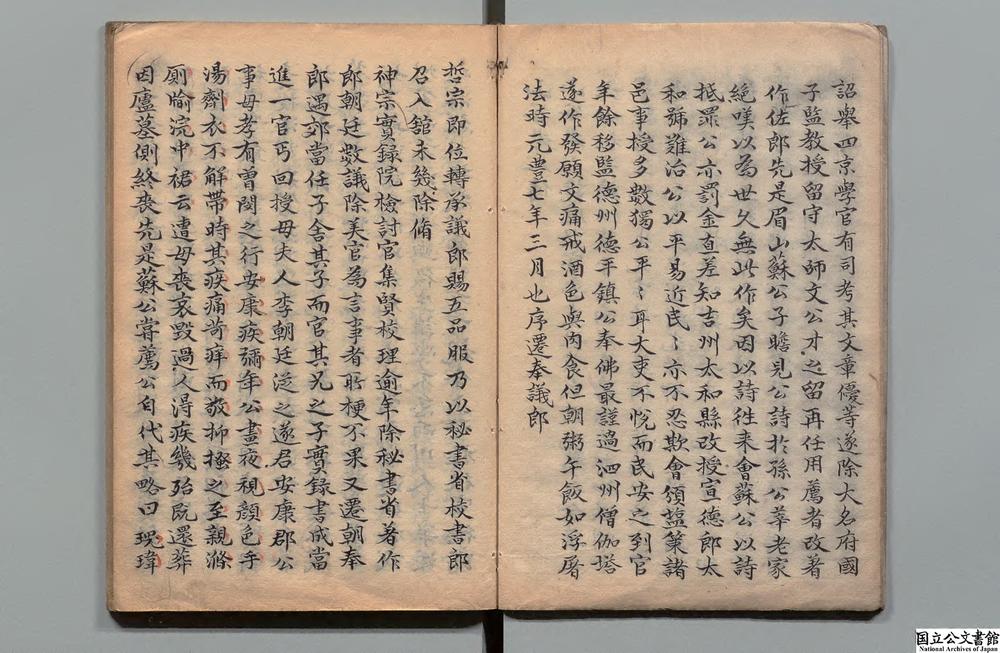 詔舉四京學官有司考其文章優等遂除大名府國
子監教授留守太師文公才之留再任用薦者改著
作佐郎先是眉山蘇公子瞻見公詩於孫公莘老家
絶嘆以為世久無此作矣因以詩徃来會蘇公以詩
抵罪公亦罰金直差知吉州太和縣改授宣德郎太
和號難治公以平易近民〻亦不忍欺會頒塩策諸
邑事授多數獨公平〻耳大吏不悅而民安之到官
年餘移監德州德平鎮公奉佛最謹過泗州僧伽塔
遂作發願文痛戒酒色與肉食但朝粥午飯如浮屠
法時元豊七年三月也序遷奉議郎
哲宗即位轉承議郎賜五品服乃以秘書省校書郎
召入舘未幾除脩
神宗實録院檢討官集賢校理逾年除秘書省著作
郎朝廷數議除美官為言事者所梗不果又遷朝奉
郎遇郊當任子舍其子而官其兄之子實録書成當
進一官丐回授母夫人李朝廷従之遂君安康郡公
事母孝有曽閔之行安康疾彌年公晝夜視顔色手
湯劑衣不解帶時其疾痛苛痒而敬抑搔之至親滌
厠牏浣中裙云遭母喪哀毀過人淂疾幾殆既還葬
因廬墓側終喪先是蘇公嘗薦公自代其略曰瑰瑋
国立公文書館
National Archives of Japan